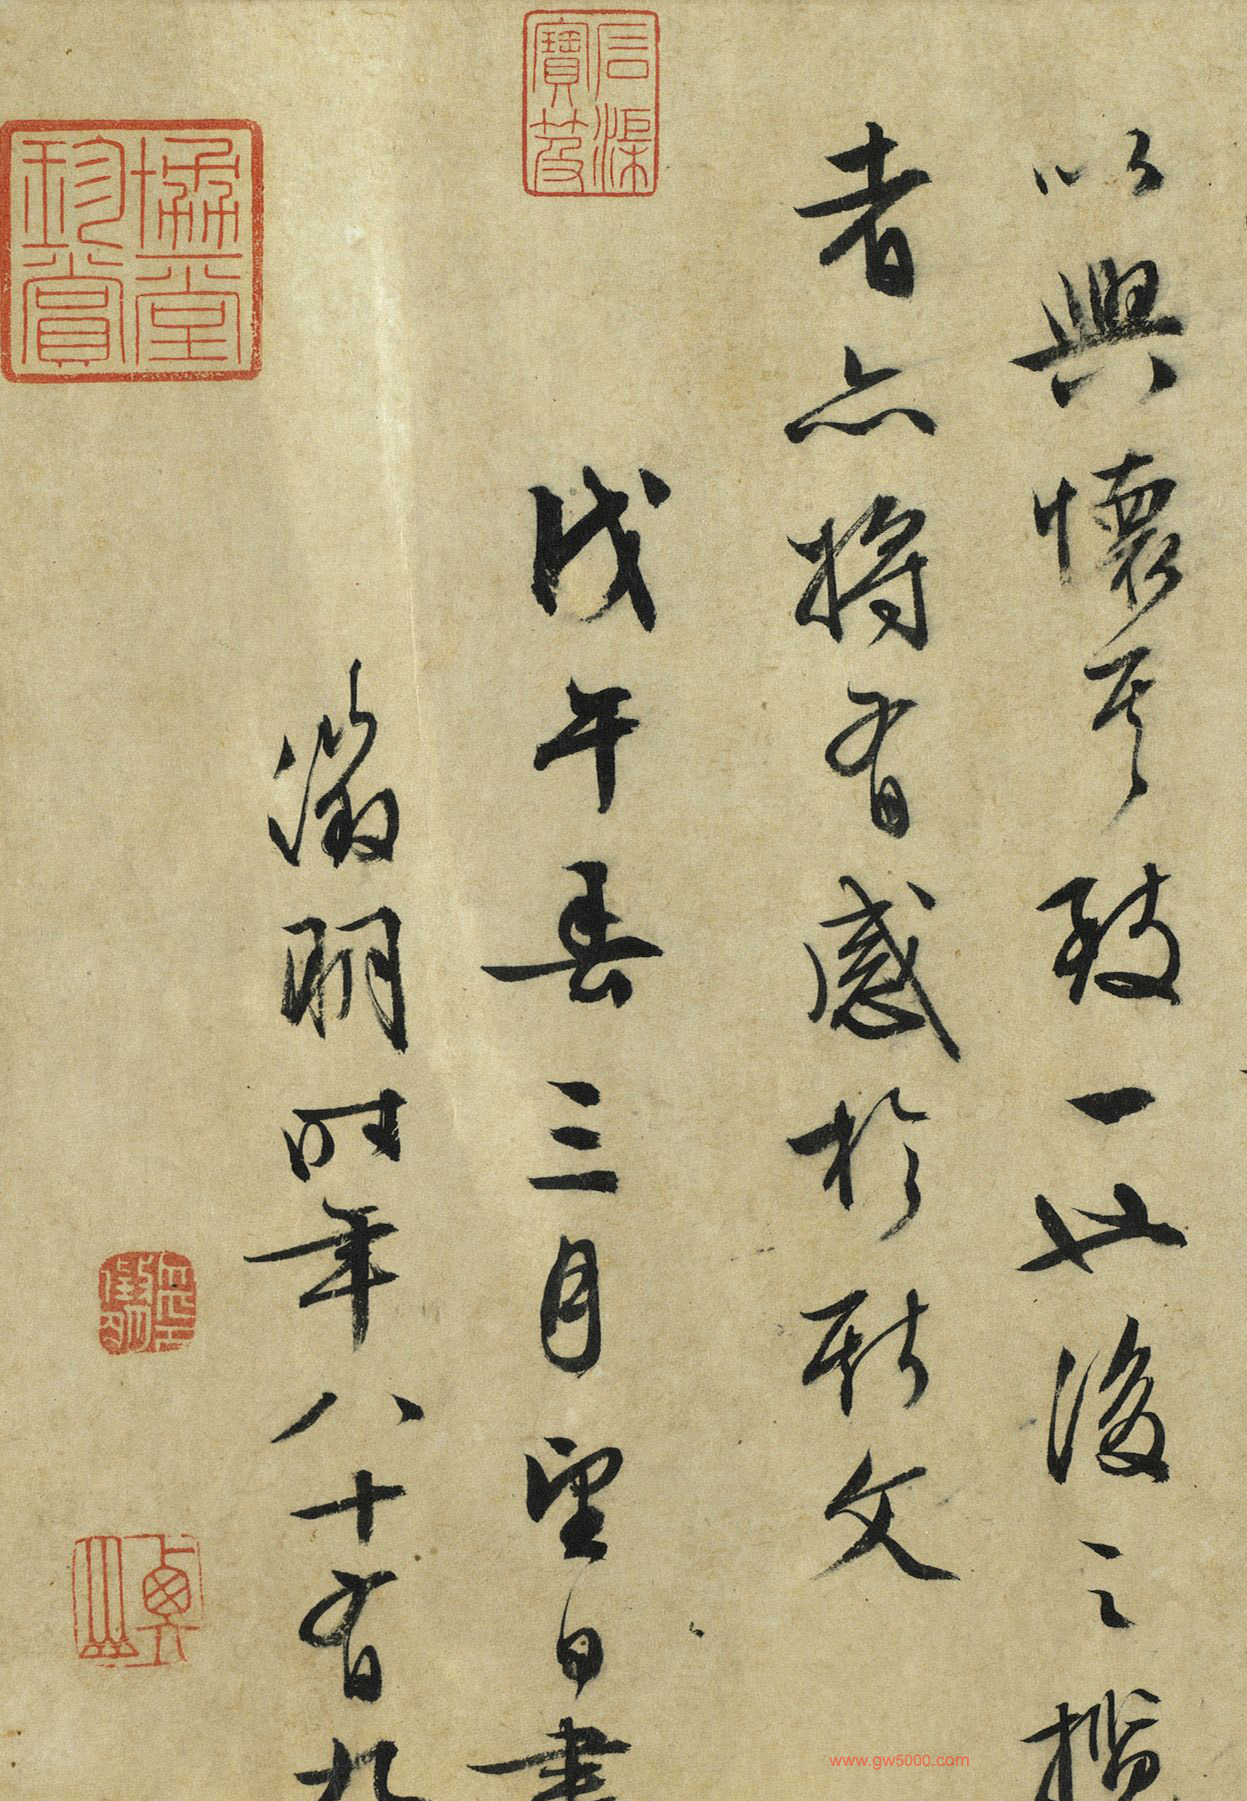 以興懷其致一也後之攬
者亦將有感於斯文
戊午春三月望日書
徵明時年八十有九
石渠寶笈
協堂珍賞
www.gw5000.com